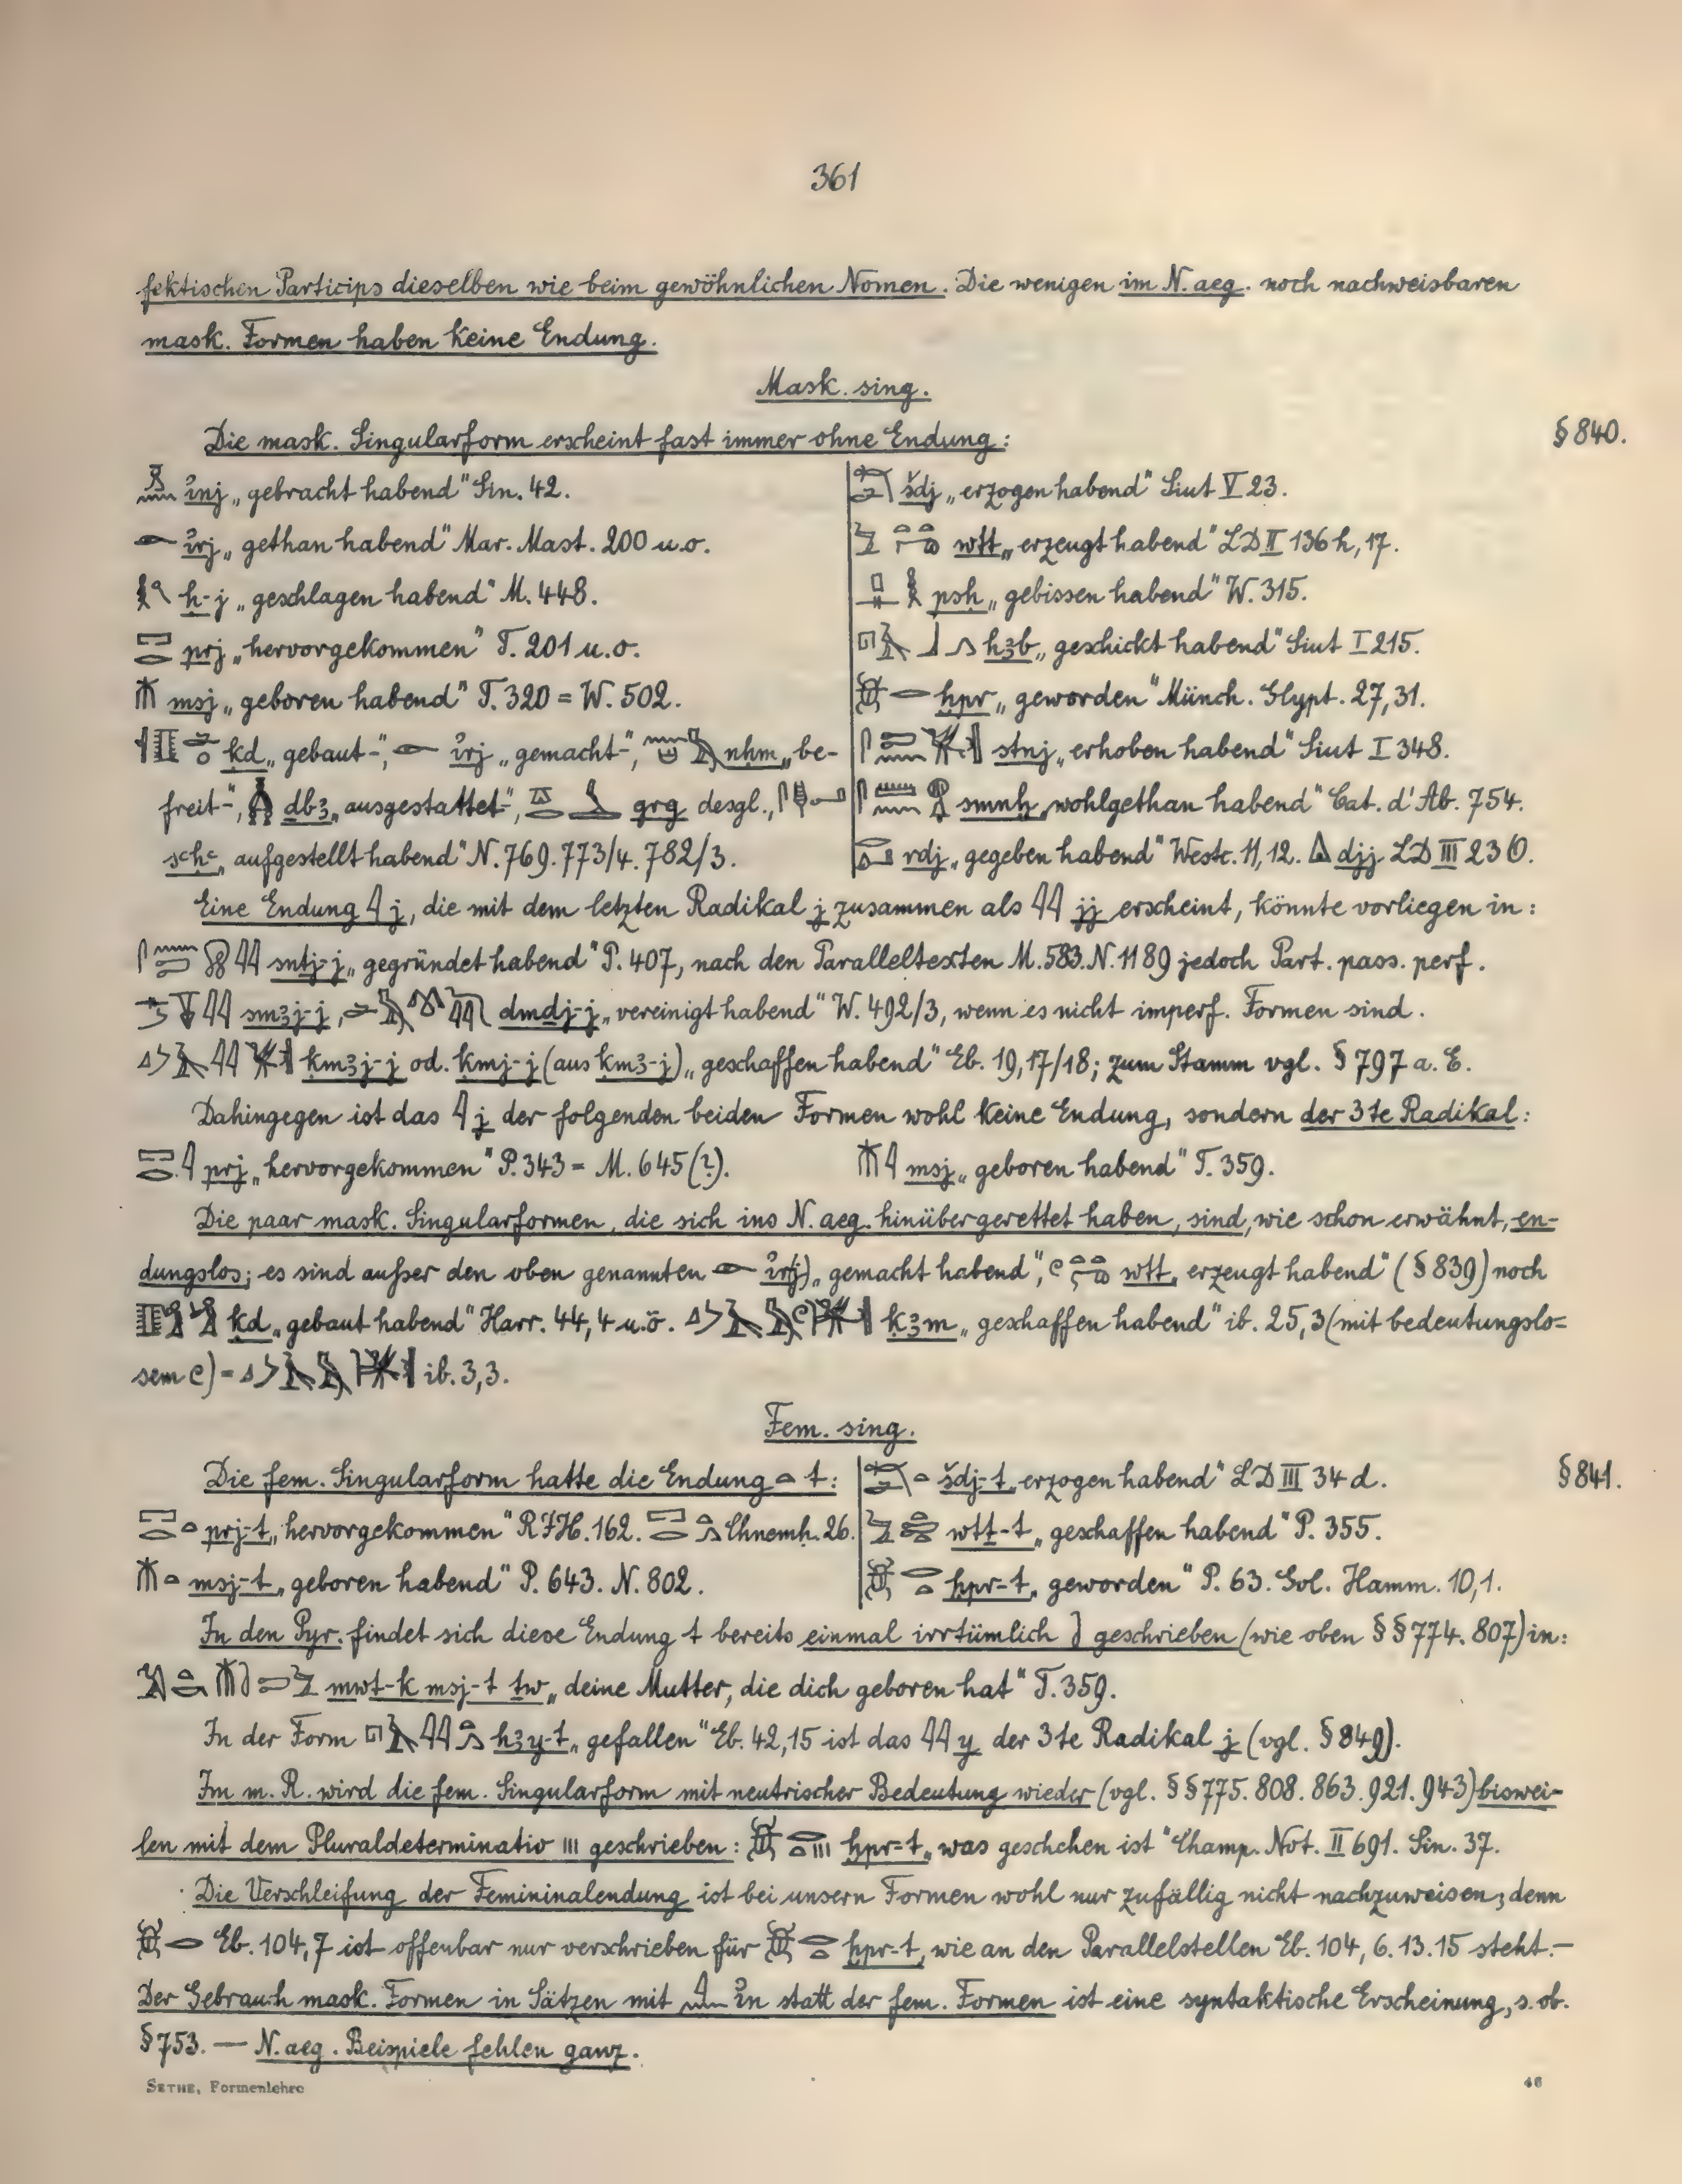 361
fektischen Particips dieselben wie beim gewöhnlichen Nomen. Die wenigen im N. aeg. noch nachweisbaren
mask. Formen haben keine Endung.
Mask. sing.
Die mask. Singularform erscheint fast immer ohne Endung: § 840.
i͗nj „gebracht habend“ Sin. 42.
i͗rj „gethan habend“ Mar. Mast. 200 u. o.
ḥ-j „geschlagen habend“ M. 448.
prj „hervorgekommen“ T. 201 u. o.
msj „geboren habend“ T. 320 = W. 502.
ḳd „gebaut-“, i͗rj „gemacht-“, nḥm „be-
freit-“, dbꜣ „ausgestattet-“, grg desgl.,
sꜥḥꜥ „aufgestellt habend“ N. 769. 773/4. 782/3.
šdj „erzogen habend“ Siut V 23.
wtṯ „erzeugt habend“ LD II 136 h, 17.
psḥ „gebissen habend“ W. 315.
hꜣb „geschickt habend“ Siut I 215.
ḫpr „geworden“ Münch. Glypt. 27, 31.
stnj „erhoben habend“ Siut I 348.
smnḫ „wohlgethan habend“ Cat. d'Ab. 754.
rdj „gegeben habend“ Westc. 11, 12. djj LD III 236.
Eine Endung j, die mit dem letzten Radikal j zusammen als jj erscheint, könnte vorliegen in:
sntj-j „gegründet habend“ P. 407, nach den Paralleltexten M. 583. N. 1189 jedoch Part. pass. perf.
smꜣj-j, dmdj-j „vereinigt habend“ W. 492/3, wenn es nicht imperf. Formen sind.
ḳmꜣj-j od. ḳmj-j (aus ḳmꜣ-j) „geschaffen habend“ Eb. 19, 17/18; zum Stamm vgl. § 797 a. E.
Dahingegen ist das j der folgenden beiden Formen wohl keine Endung, sondern der 3te Radikal:
prj „hervorgekommen“ P. 343 = M. 645 (?). msj „geboren habend“ T. 359.
Die paar mask. Singularformen, die sich ins N. aeg. hinübergerettet haben, sind, wie schon erwähnt, en-
dungslos; es sind außer den oben genannten i͗r(j) „gemacht habend“, wtṯ „erzeugt habend“ (§ 839) noch
ḳd „gebaut habend“ Harr. 44, 4 u. ö. ḳꜣm „geschaffen habend“ ib. 25, 3 (mit bedeutungslo-
sem) = ib. 3, 3.
Fem. sing.
Die fem. Singularform hatte die Endung t: § 841.
prj-t „hervorgekommen“ RJH. 162. Chnemh. 26.
msj-t „geboren habend“ P. 643. N. 802.
šdj-t „erzogen habend“ LD III 34 d.
wtṯ-t „geschaffen habend“ P. 355.
ḫpr-t „geworden“ P. 63. Gol. Hamm. 10, 1.
In den Pyr. findet sich diese Endung t bereits einmal irrtümlich geschrieben (wie oben §§ 774. 807) in:
mwt-k msj-t ṯw „deine Mutter, die dich geboren hat“ T. 359.
In der Form hꜣy-t „gefallen“ Eb. 42, 15 ist das y der 3te Radikal j (vgl. § 849).
Im m. R. wird die fem. Singularform mit neutrischer Bedeutung wieder (vgl. §§ 775. 808. 863. 921. 943) biswei-
len mit dem Pluraldeterminativ ııı geschrieben: ḫpr-t „was geschehen ist“ Champ. Not. II 691. Sin. 37.
Die Verschleifung der Femininalendung ist bei unsern Formen wohl nur zufällig nicht nachzuweisen; denn
Eb. 104, 7 ist offenbar nur verschrieben für ḫpr-t, wie an den Parallelstellen Eb. 104, 6. 13. 15 steht. —
Der Gebrauch mask. Formen in Sätzen mit i͗n statt der fem. Formen ist eine syntaktische Erscheinung, s. ob.
§ 753. — N. aeg. Beispiele fehlen ganz.
SETHE, Formenlehre 46